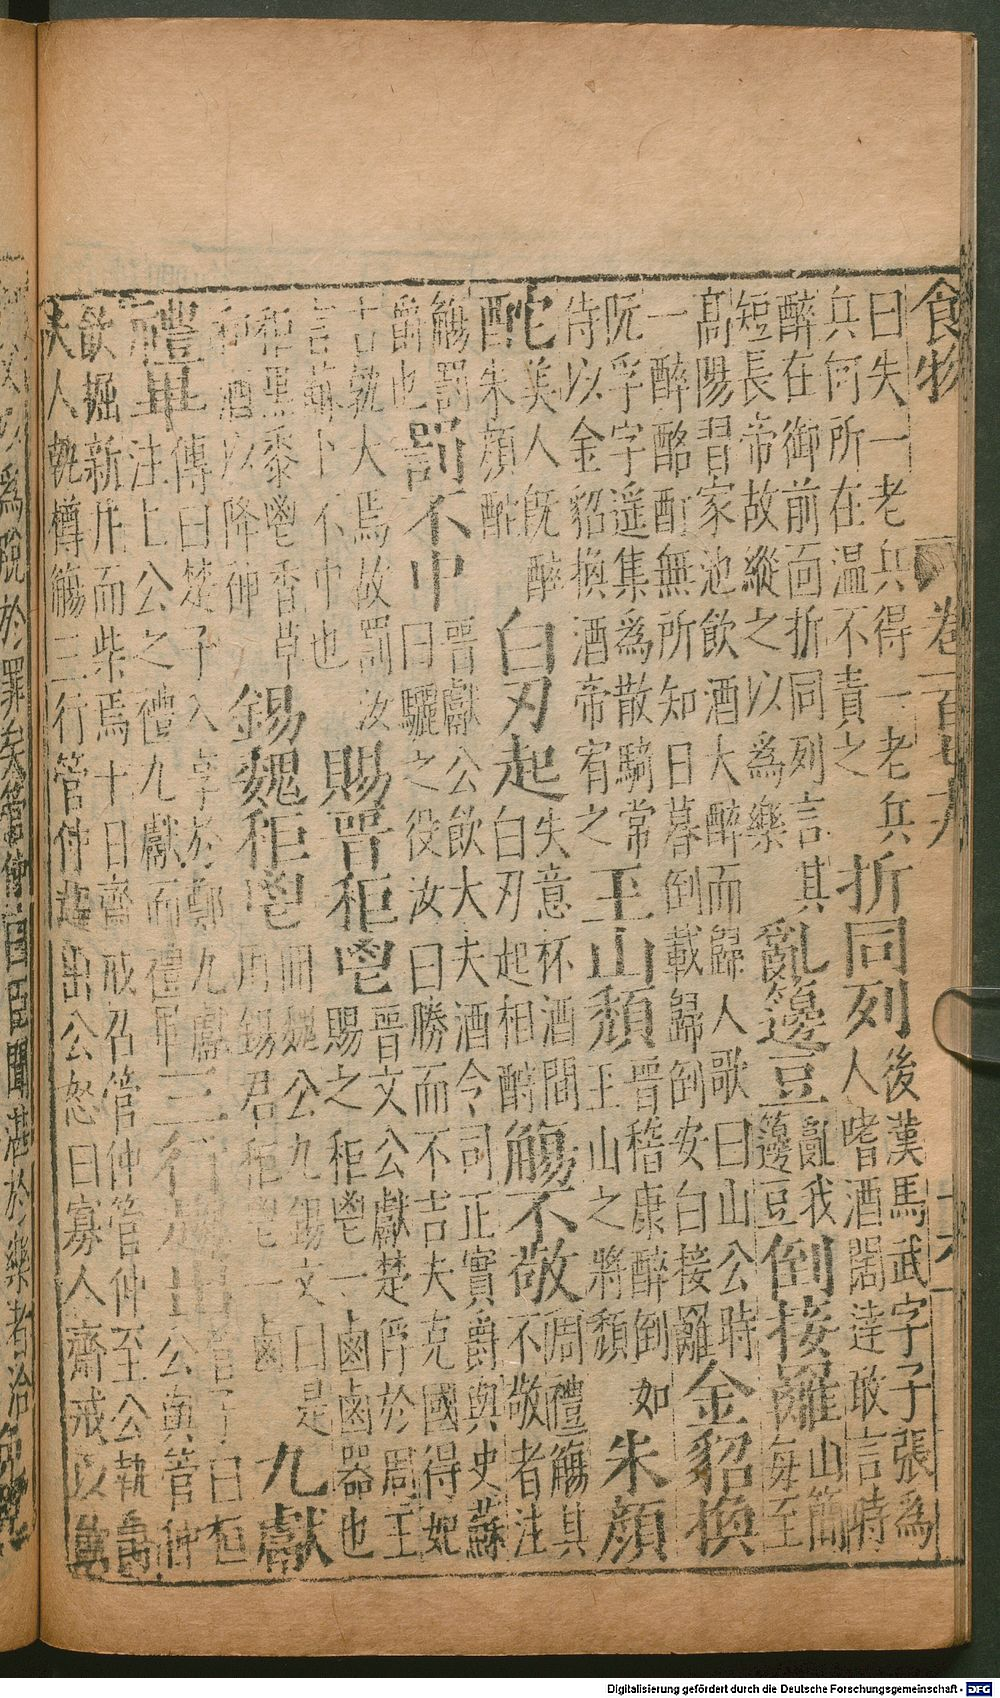 食物 卷一百七九
曰失一老兵得一老兵
兵何所在温不責之
折同列
後漢馬武字子張為
人嗜酒闊達敢言時
醉在御前面折同列言其
短長帝故縱之以為樂
亂籩豆
亂我
籩豆
倒接䍦
山簡
每至
高陽習家池飲酒大醉而歸人歌曰山公時
一醉酩酊無所知日暮倒載歸倒安白接䍦
金貂換
阮孚字遥集為散騎常
侍以金貂換酒帝宥之
玉山頽
晋稽康醉倒如
玉山之將頽
朱顔
酡
美人既醉
朱顔酡
白刃起
失意杯酒間
白刃起相酧
觴不敬
周禮觴其
不敬者注
觴罰
爵也
罰不中
晋獻公飲大夫酒令司正實爵與史蘇
曰驪之役汝曰勝而不吉夫克國得妃
吉孰大焉故罰汝
言卜不中也
賜晋秬鬯
晋文公獻楚俘於周王
賜之秬鬯一卣卣器也
秬黒黍鬯香草
和酒以降神
錫魏秬鬯
冊魏公九錫文曰是
用錫君秬鬯一卣
九獻
禮畢
傳曰楚子入享於鄭九獻
注上公之禮九獻而禮畢
三行趨出
管子曰桓
公與管仲
飲掘新井而柴焉十日齊戒召管仲管仲至公執爵
夫人執樽觴三行管仲趨出公怒曰寡人齋戒以飲
以為脫於罪矣管仲曰臣聞湛於樂者洽
Digitalisierung gefördert durch die Deutsche Forschungsgemeinschaft - DFG